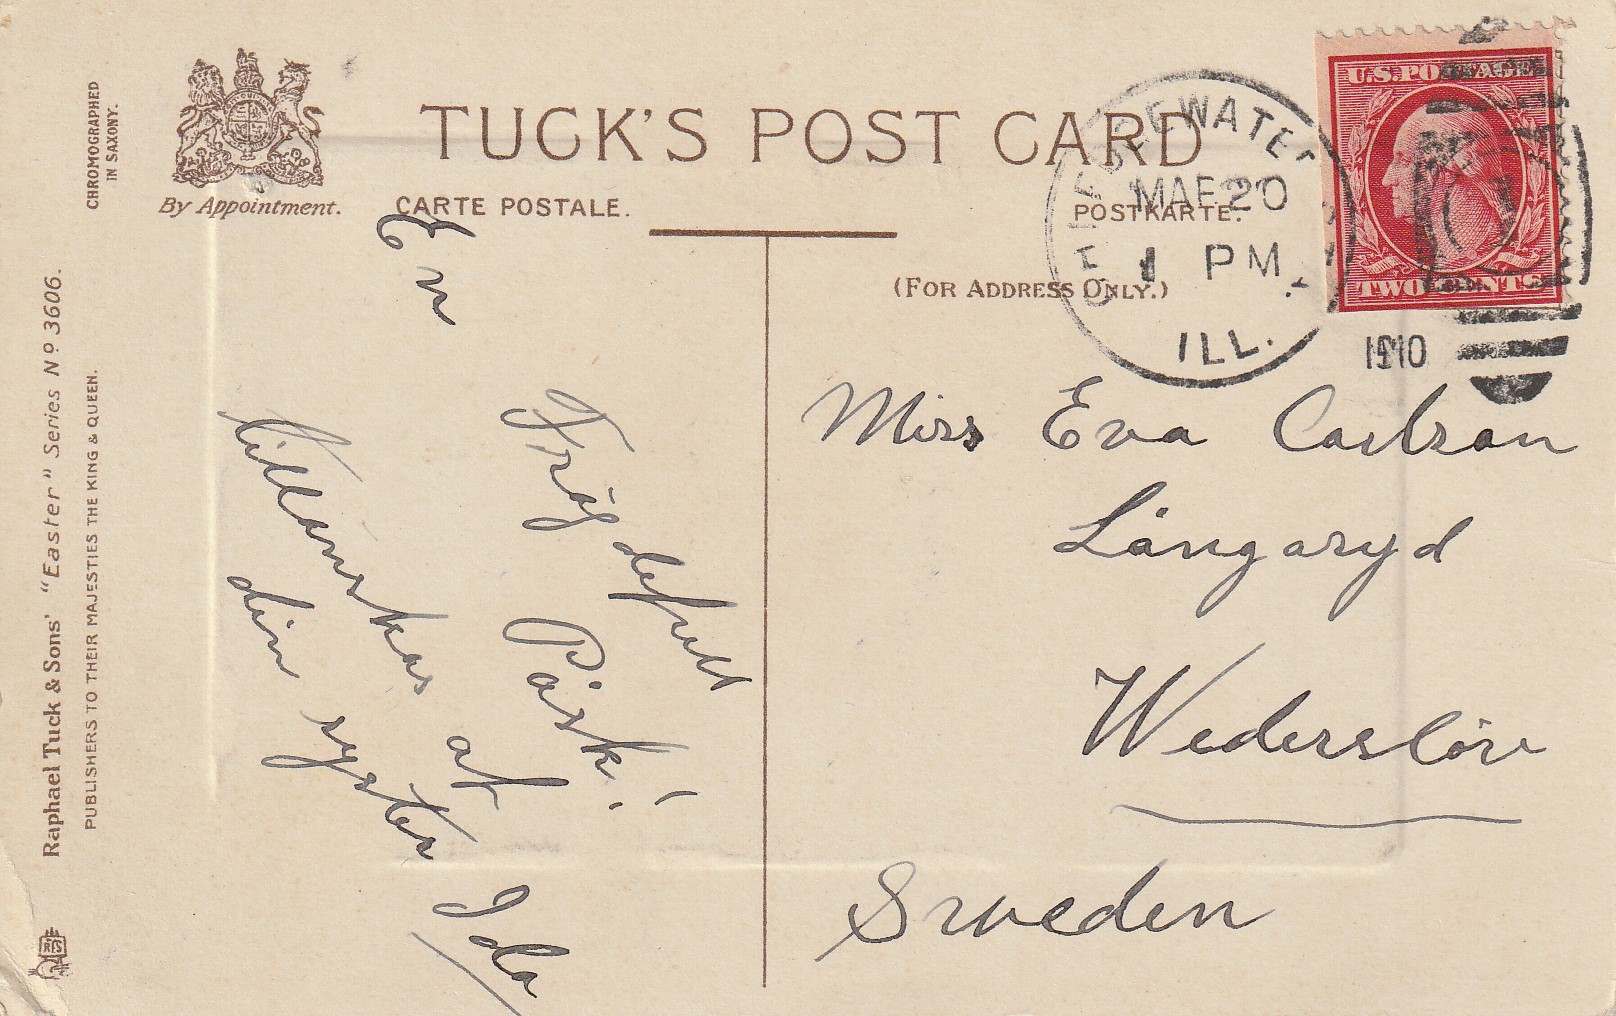 CHROMOGRAPHED
IN SAXONY.
By Appointment.
TUCK'S POST CARD
CARTE POSTALE.
POSTKARTE.
(FOR ADDRESS ONLY.)
Raphael Tuck & Sons' "Easter" Series No 3606.
PUBLISHERS TO THEIR MAJESTIES THE KING & QUEEN.
MAR 20
1 PM
ILL.
1910
U.S. POSTAGE
TWO CENTS
En
Fröjdefull
Påsk!
tillönskas af
din syster Ida
Miss Eva Carlson
Långaryd
Wederslöv
Sweden